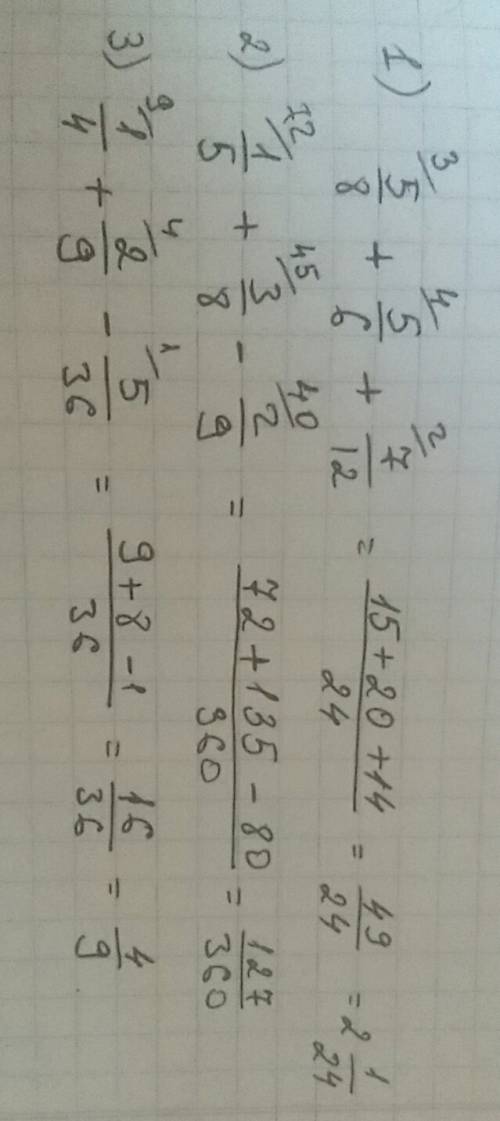 1) ³/5/8 + ⁴/5/6 + ²/7/12 = (15+20+14)/24 = 49/24 = 2 1/24
2) ⁷²/1/5 + ⁴⁵/3/8 - ⁴⁰/2/9 = (72+135-80)/360 = 127/360
3) ⁹/1/4 + ⁴/2/9 - ¹/5/36 = (9+8-1)/36 = 16/36 = 4/9